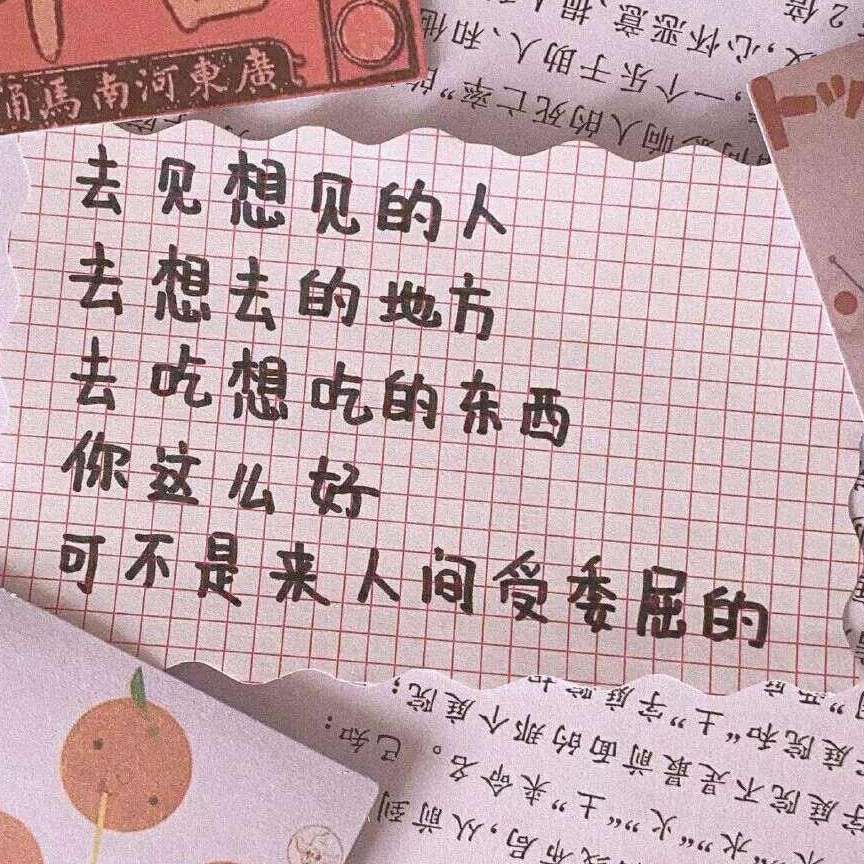 廣東河南馬涌
去见想见的人
去想去的地方
去吃想吃的东西
你这么好
可不是来人间受委屈的
2倍
心怀恶意、损
一个乐子助人、和他
响影人的死亡率”的
已知：
庭院和“土”字庭院
字庭院不是最前面的那个庭院；
“水”“火”“土”来命名。
局，从前到